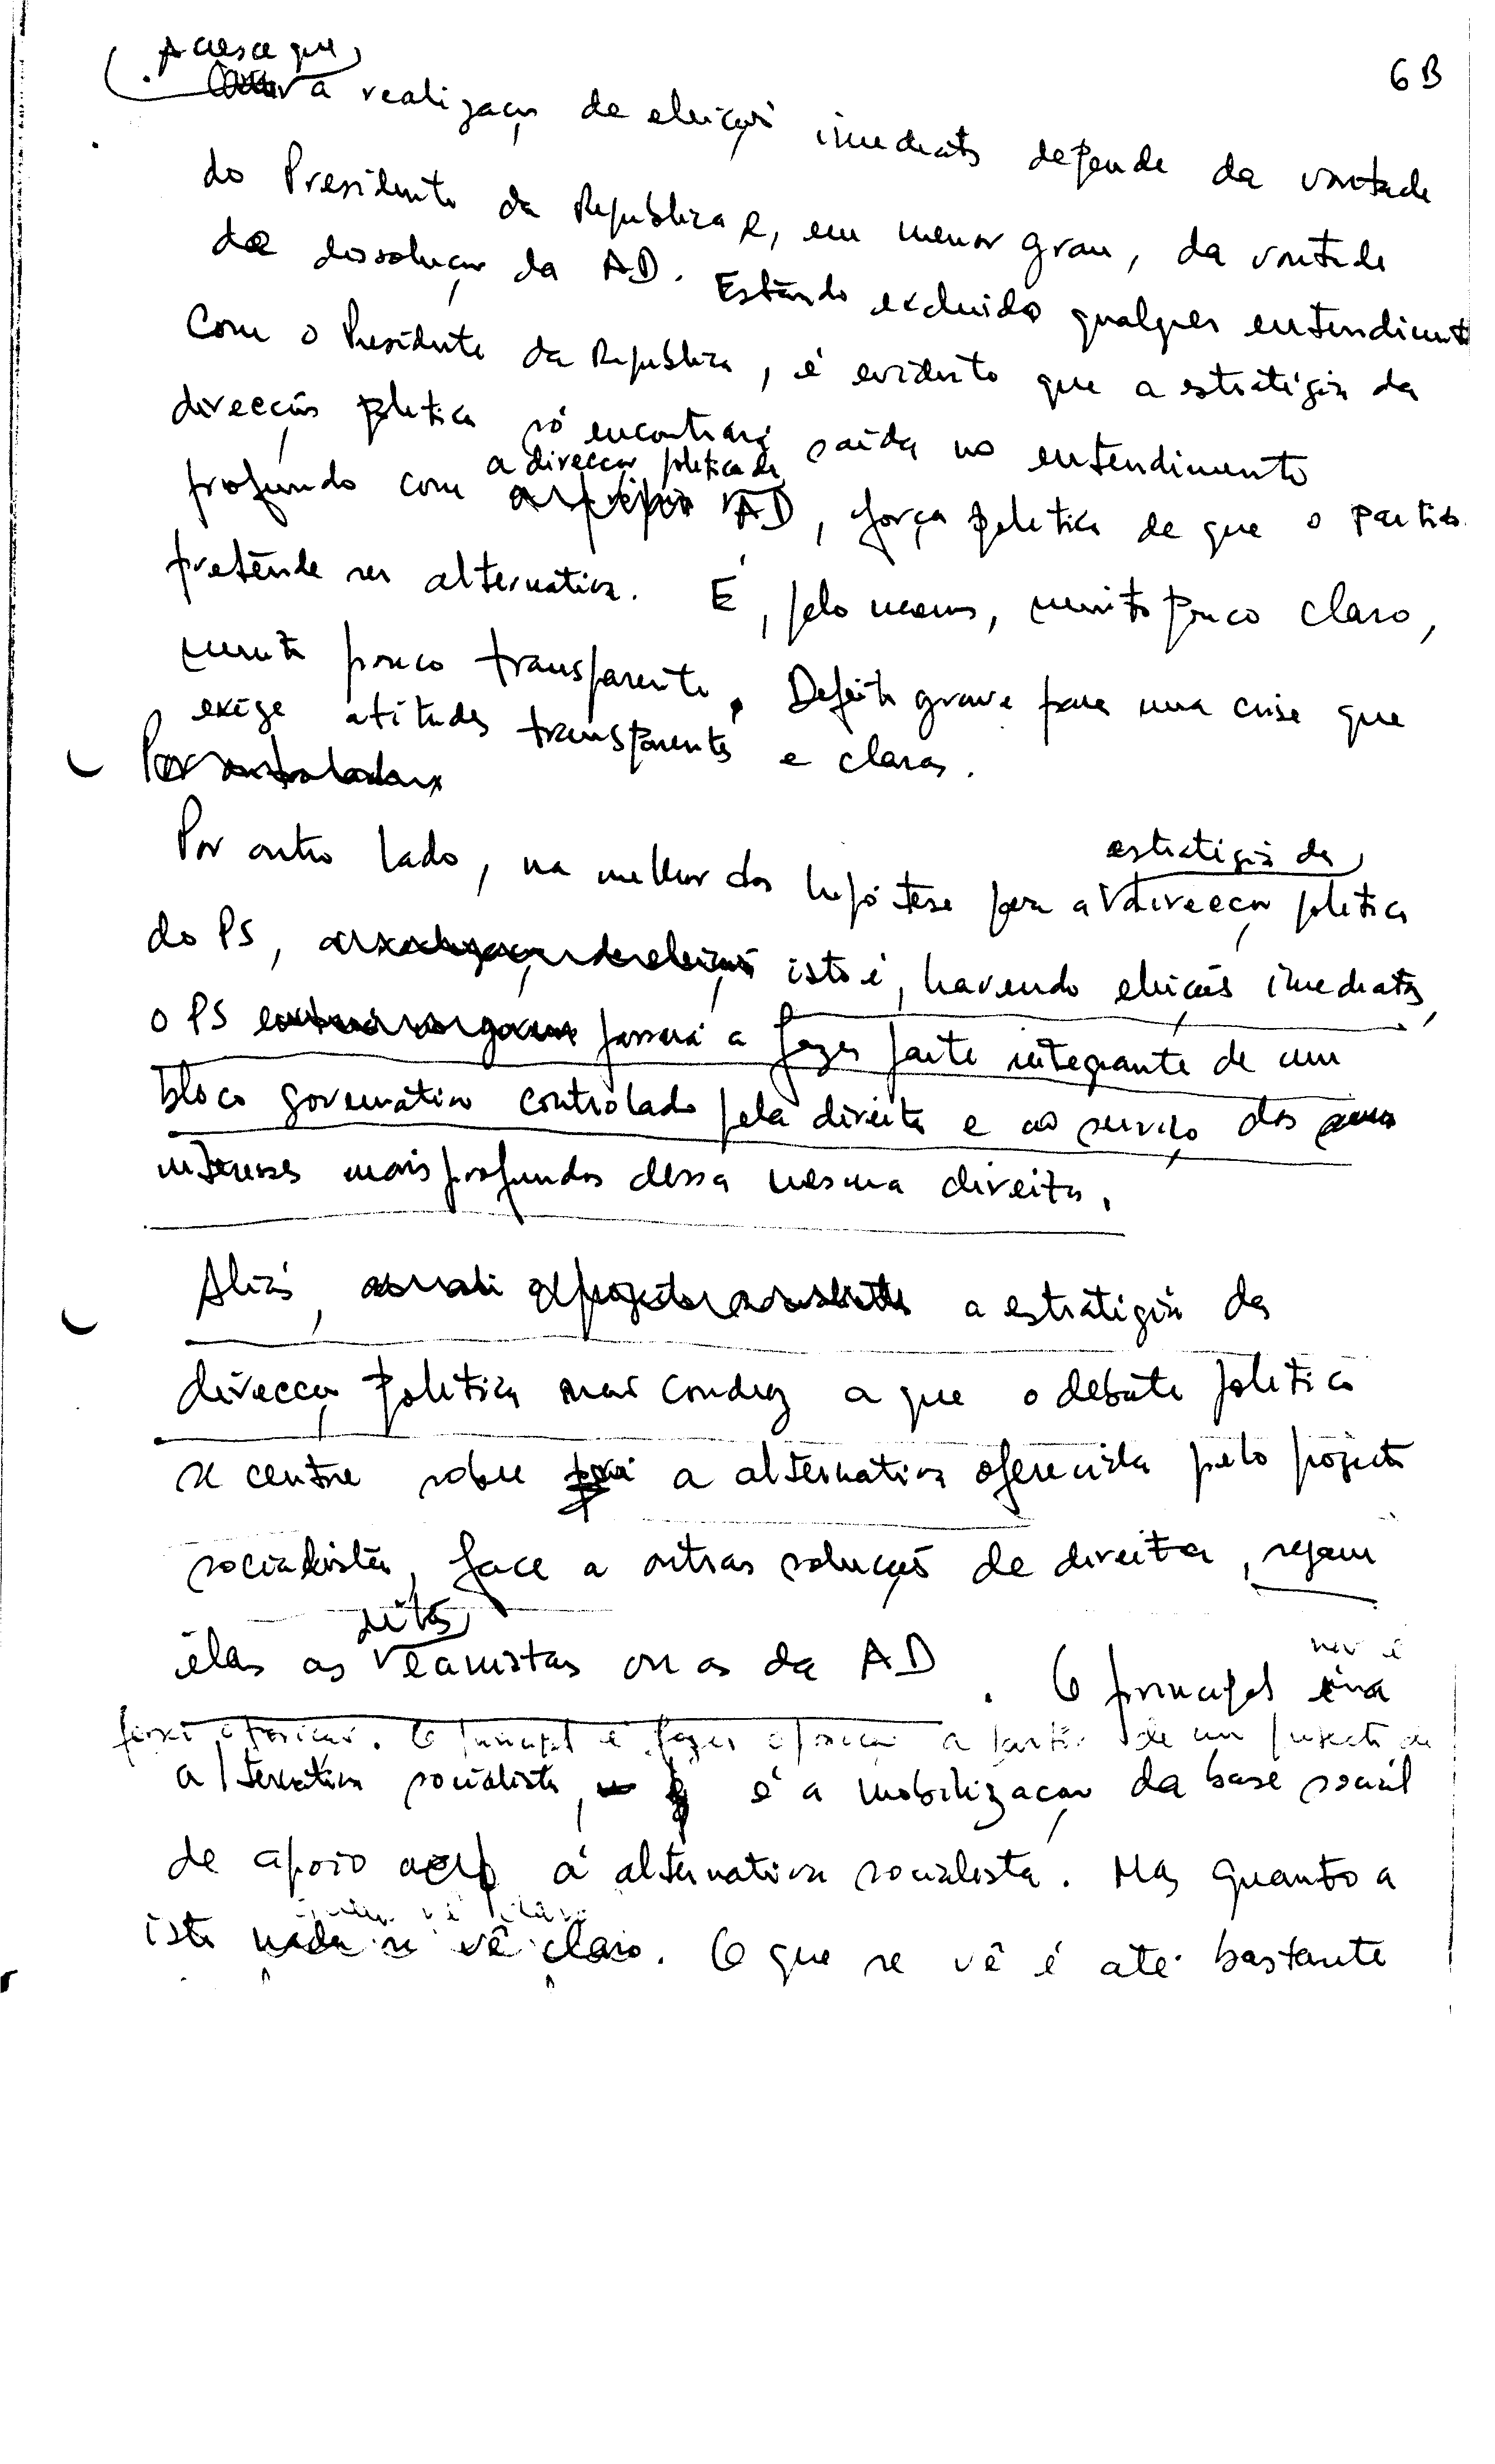 6B
Acresce que
a realização de eleições imediatas depende da vontade
do Presidente da República e, em menor grau, da vontade
de dissolução da AD. Estando excluído qualquer entendimento
com o Presidente da República, é evidente que a estratégia da
direcção política só encontrará saída no entendimento
a direcção política da
profundo com AD, força política de que o partido
pretende ser alternativa. É, pelo menos, muito pouco claro,
muito pouco transparente. Defeito grave para uma crise que
exige atitudes transparentes e claras.
Por outro lado, na melhor das hipóteses para a direcção política
estratégia da
do PS, isto é, havendo eleições imediatas,
o PS passará a fazer parte integrante de um
bloco governativo controlado pela direita e ao serviço dos
interesses mais profundos dessa mesma direita.
Aliás, a estratégia da
direcção política mal condiz a que o debate político
se centre sobre a alternativa oferecida pelo projecto
socialista, face a outras soluções de direita, sejam
ditas
elas as eanistas ou as da AD. O principal
não é
fazer oposição. O principal é fazer oposição a partir de um projecto de
alternativa socialista, é a mobilização da base social
de apoio à alternativa socialista. Mas quanto a
isto nada se vê claro. O que se vê é até bastante